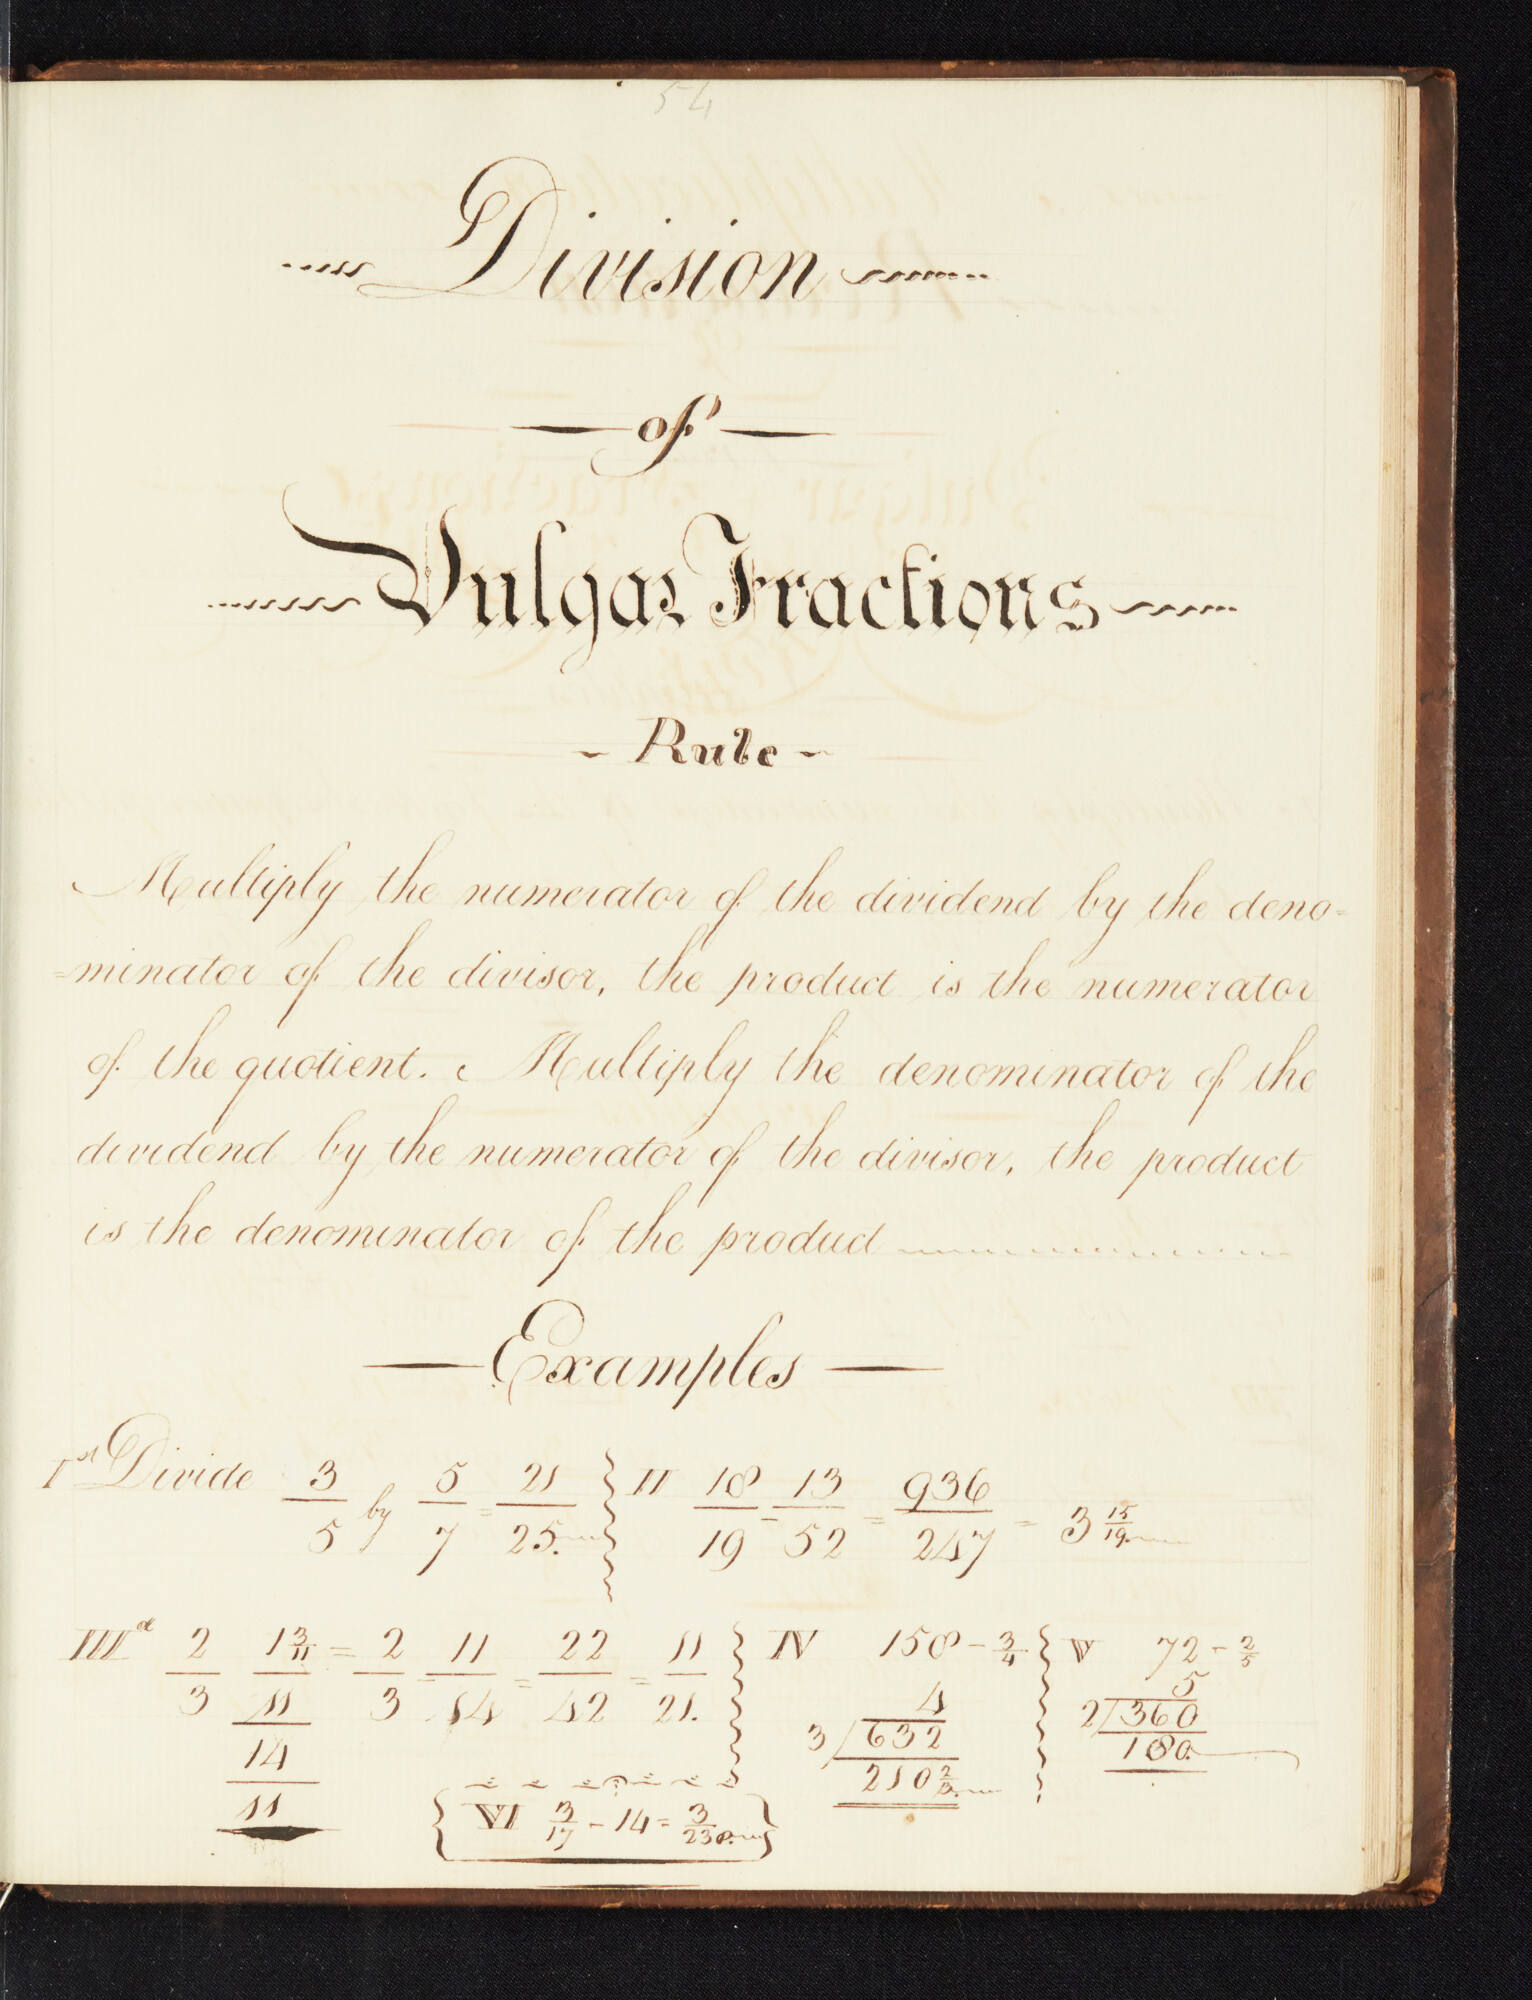 54
Division
of
Vulgar Fractions
Rule
Multiply the numerator of the dividend by the deno=
=minator of the divisor, the product is the numerator
of the quotient. Multiply the denominator of the
dividend by the numerator of the divisor, the product
is the denominator of the product
Examples
I st Divide 3/5 by 5/7 = 21/25. II 18/19 - 13/52 = 936/247 = 3 15/19.
III d 2/3 1 3/11 = 2/3 - 11/14 = 22/42 = 11/21.
11
14
11
IV 158 - 3/4
4
3/632
210 2/3.
V 72 - 2/5
5
2/360
180.
VI 3/17 - 14 = 3/238.